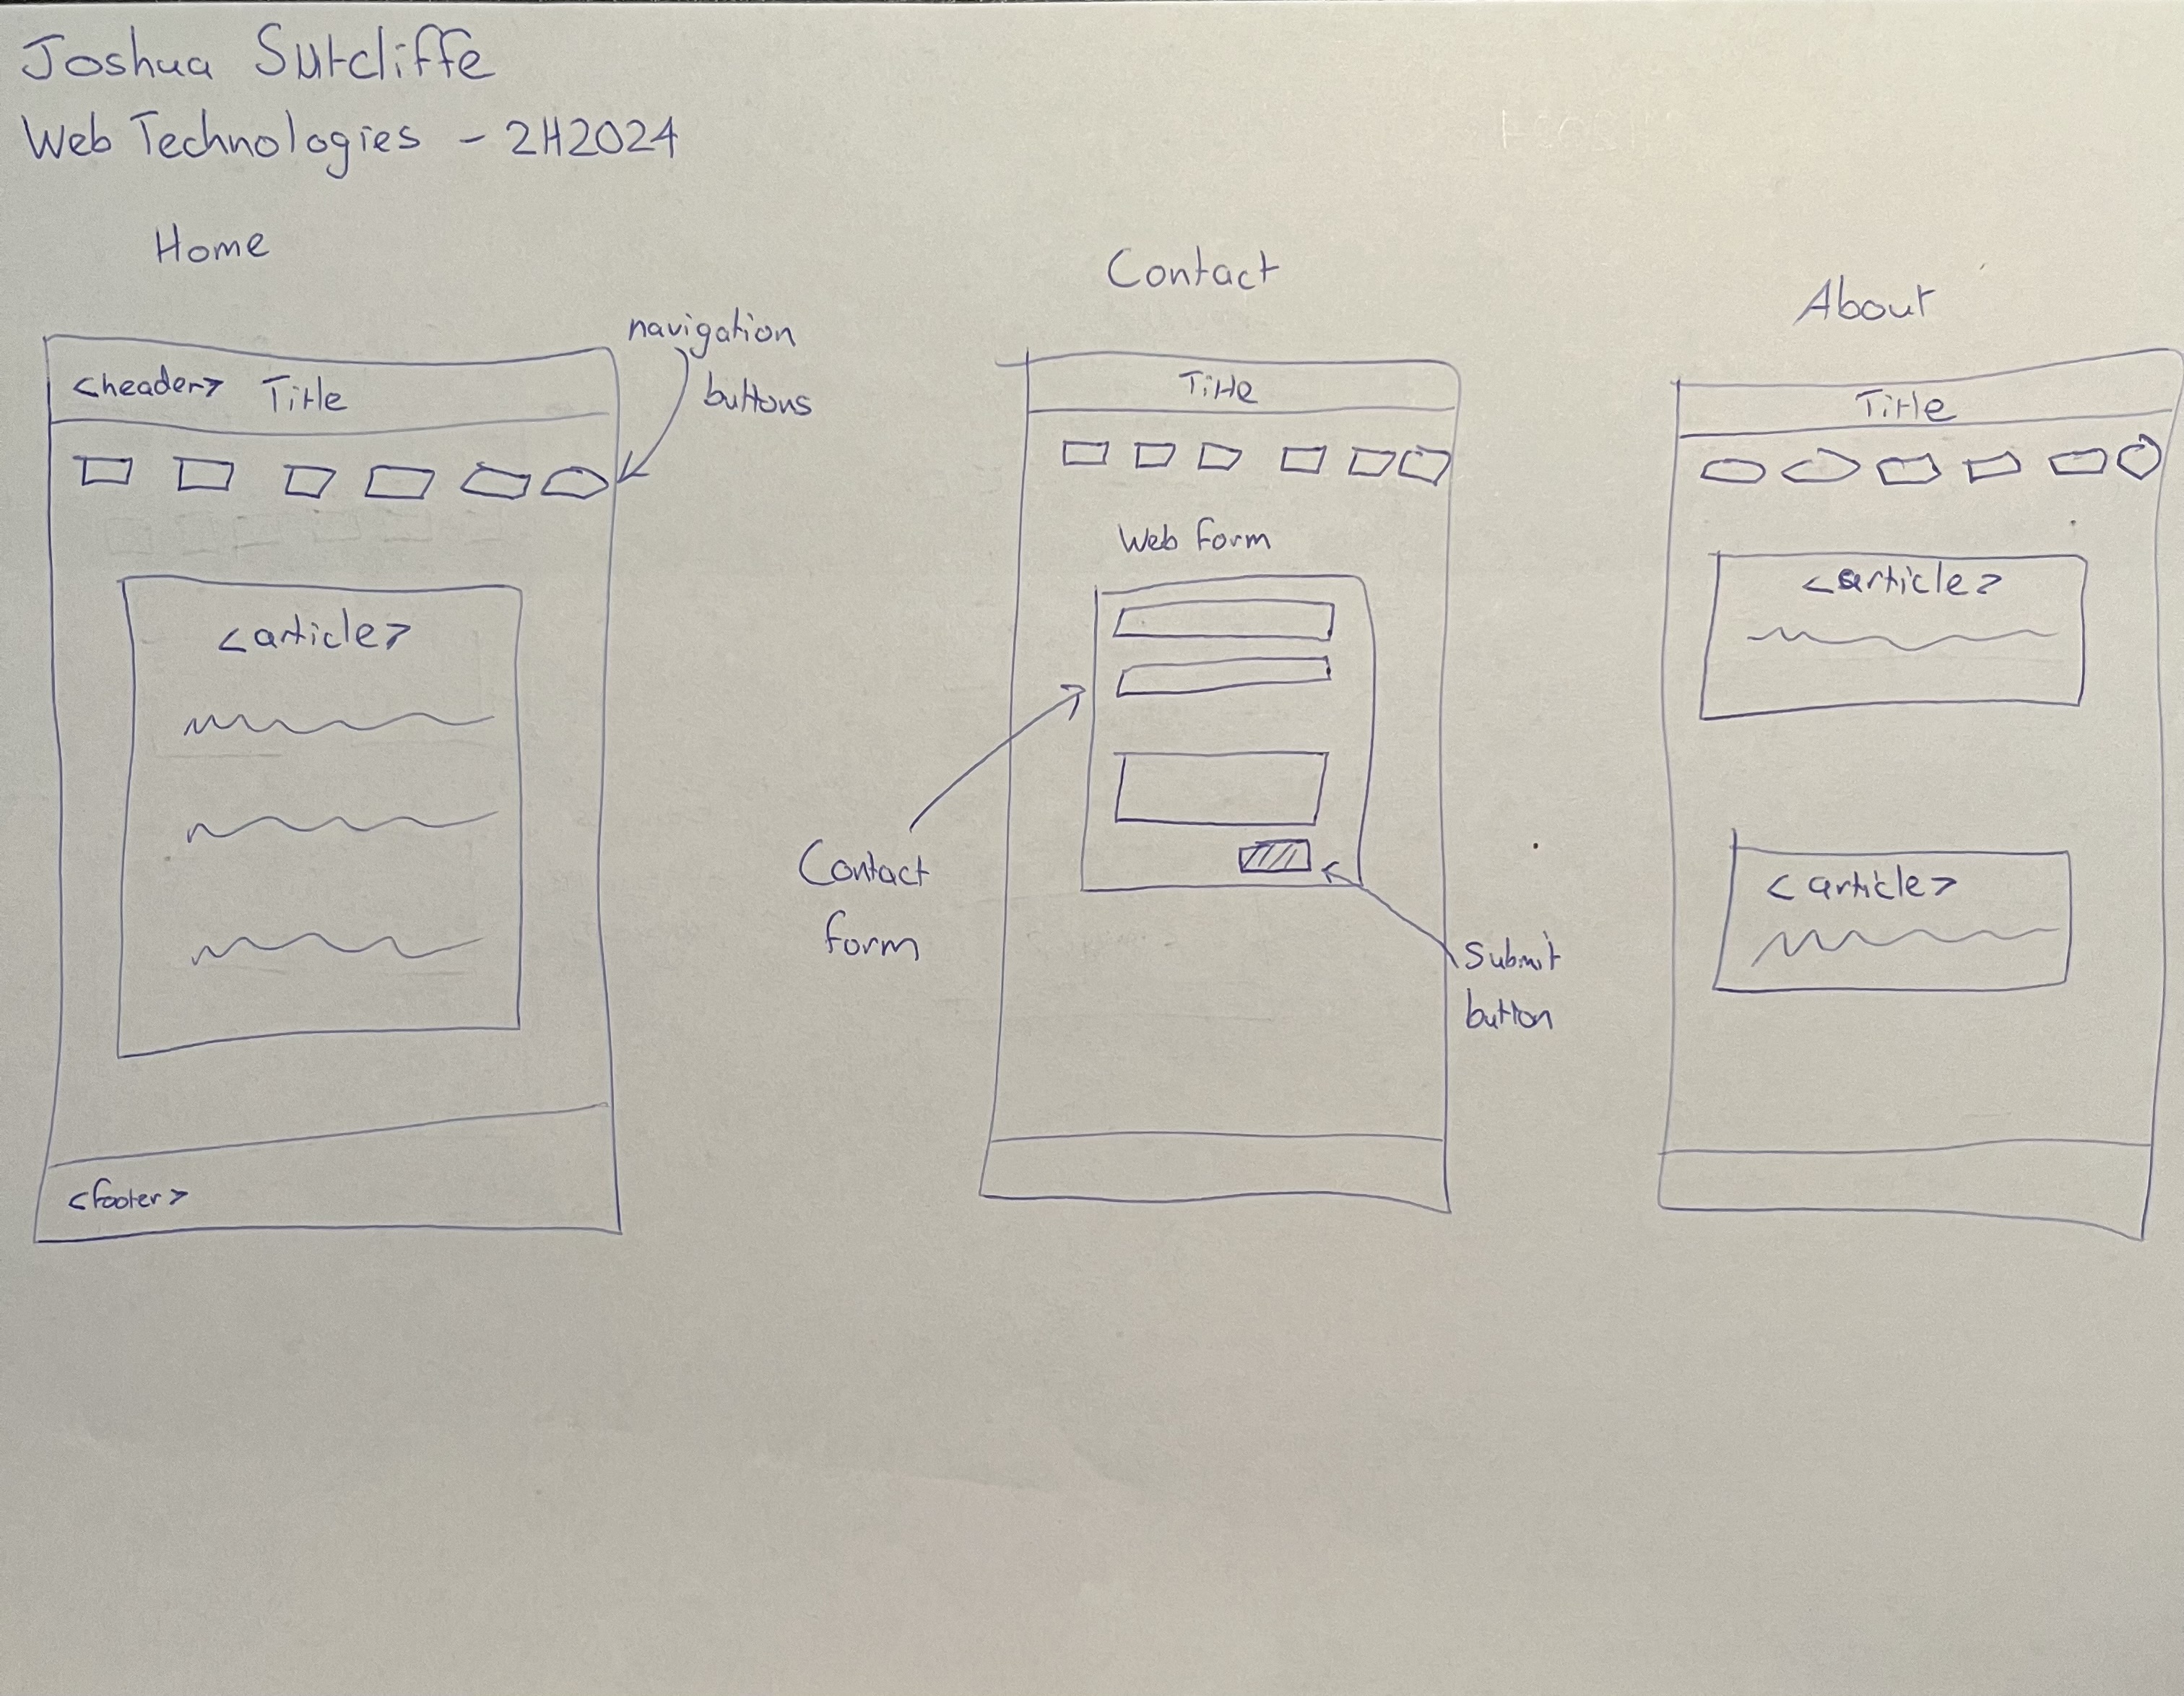 Joshua Sutcliffe
Web Technologies - 2H2024
Home
<header> Title
navigation
buttons
<article>
<footer>
Contact
Title
Web form
Contact
form
Submit
button
About
Title
<article>
<article>